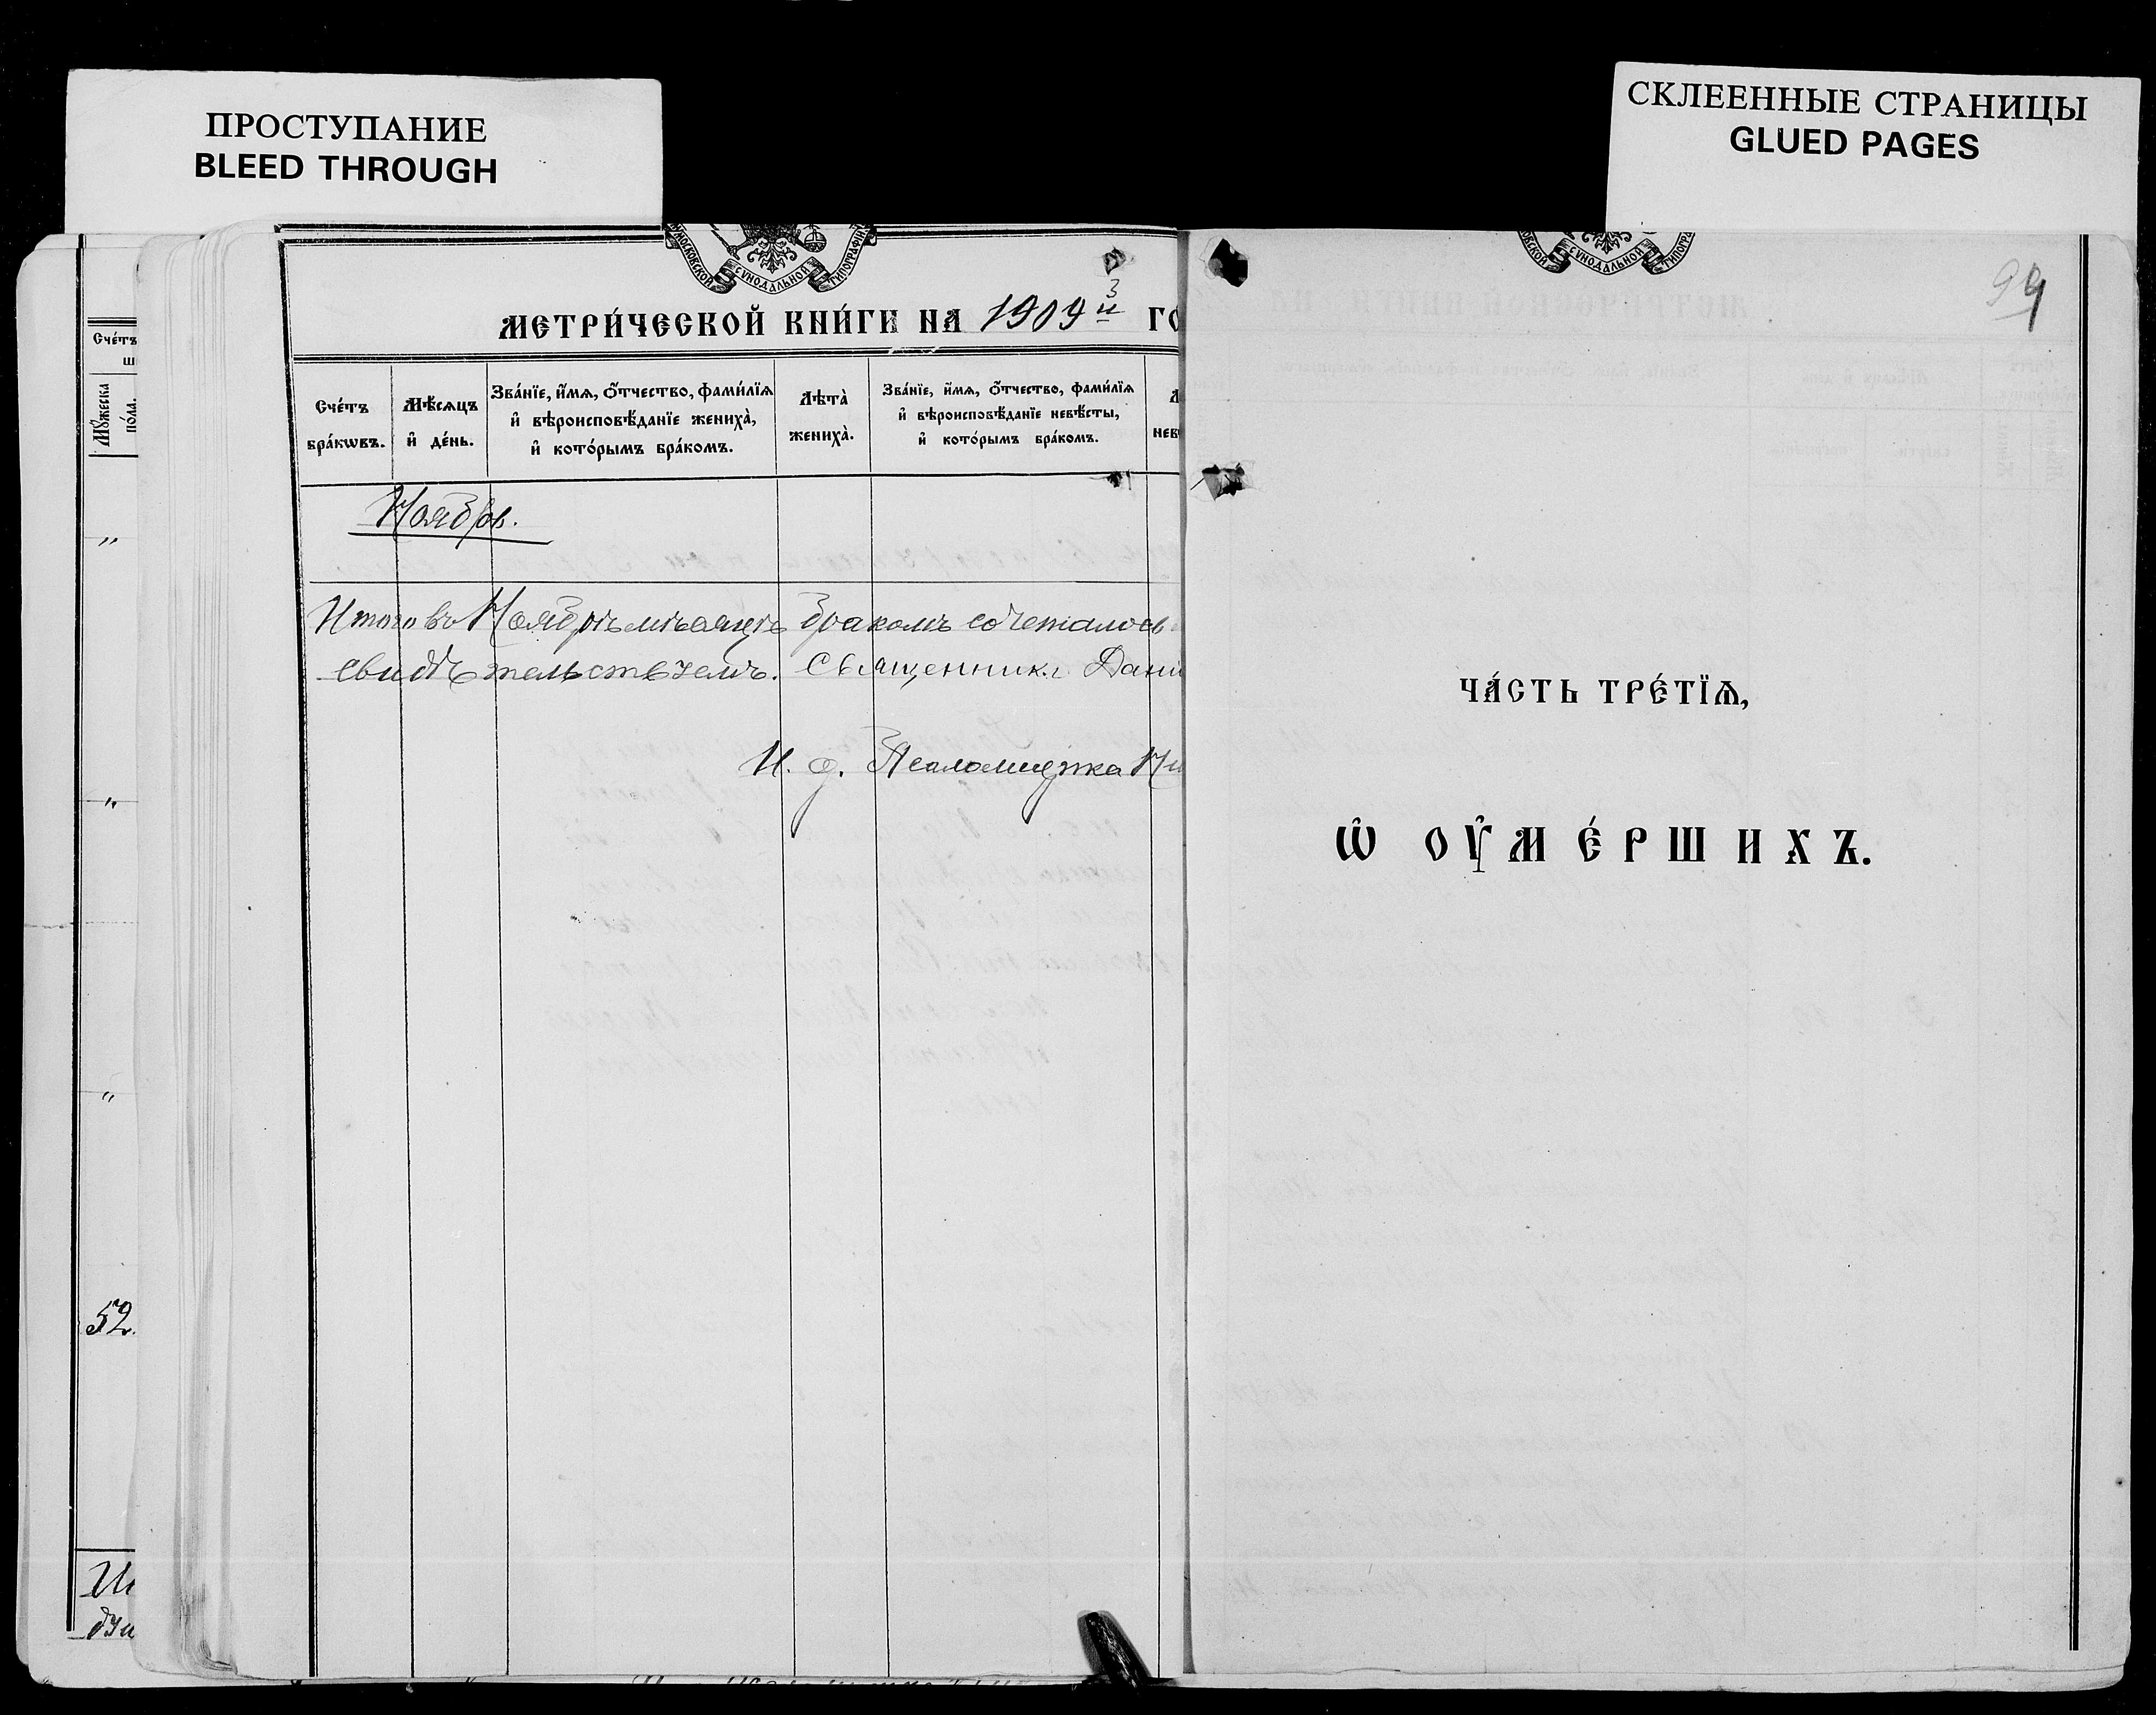 ПРОСТУПАНИЕ
BLEED THROUGH
СКЛЕЕННЫЕ СТРАНИЦЫ
GLUED PAGES
МОСКОВСКОЙ СѴНОДАЛЬНОЙ ТИПОГРАФІИ
МЕТРИ́ЧЕСКОЙ КНИ́ГИ НА 1909 й ГО
3
Сче́тъ
Мꙋ́жеска
по́ла.
Сче́тъ
бра́кѡвъ.
Мѣ́сѧцъ
и҆ де́нь.
Зва́нїе, и҆́мѧ, ѻ҆́тчество, фами́лїѧ
и҆ вѣроисповѣ́данїе жениха̀,
и҆ кото́рымъ бра́комъ.
Лѣта̀
жениха̀.
Зва́нїе, и҆́мѧ, ѻ҆́тчество, фами́лїѧ
и҆ вѣроисповѣ́данїе невѣ́сты,
и҆ кото́рымъ бра́комъ.
Ноябрь.
Итого въ Ноябрѣ мѣсяцѣ бракомъ сочеталось
свидѣтельствуемъ. Священникъ Дани
И. д. Псаломщика Ни
52.
СѴНОДАЛЬНОЙ
94
ЧА́СТЬ ТРЕ́ТЇѦ,
Ѡ҆ ОУ҆МЕ́РШИХЪ.